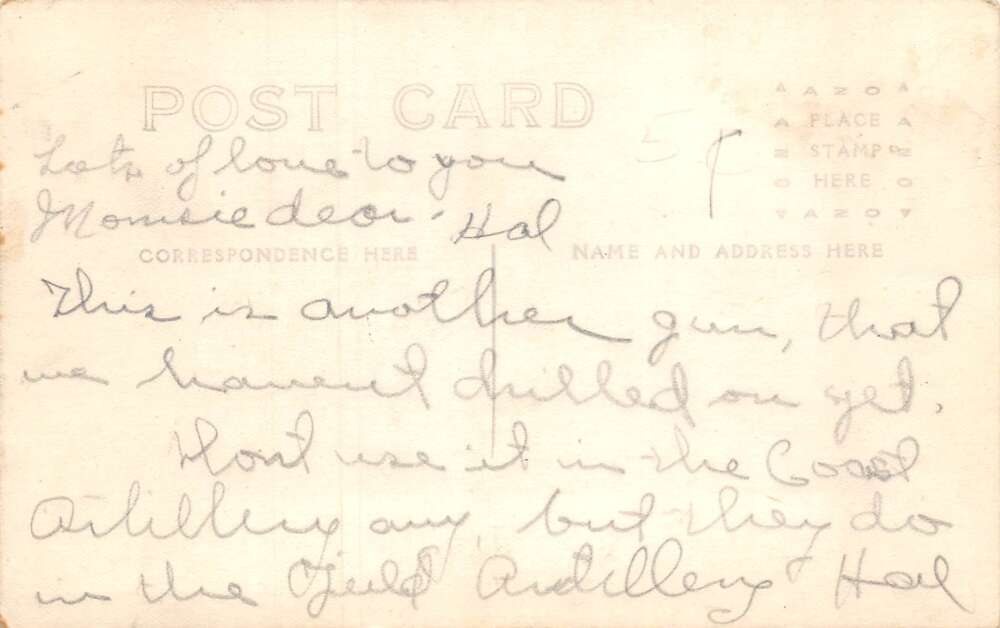 POST CARD
Lots of love to you
Momsie dear. Hal
CORRESPONDENCE HERE
NAME AND ADDRESS HERE
AZO
PLACE
STAMP
HERE
AZO
5
This is another gun, that
we havent drilled on yet.
Wont use it in the Coast
Artillery any, but they do
in the Field Artillery Hal